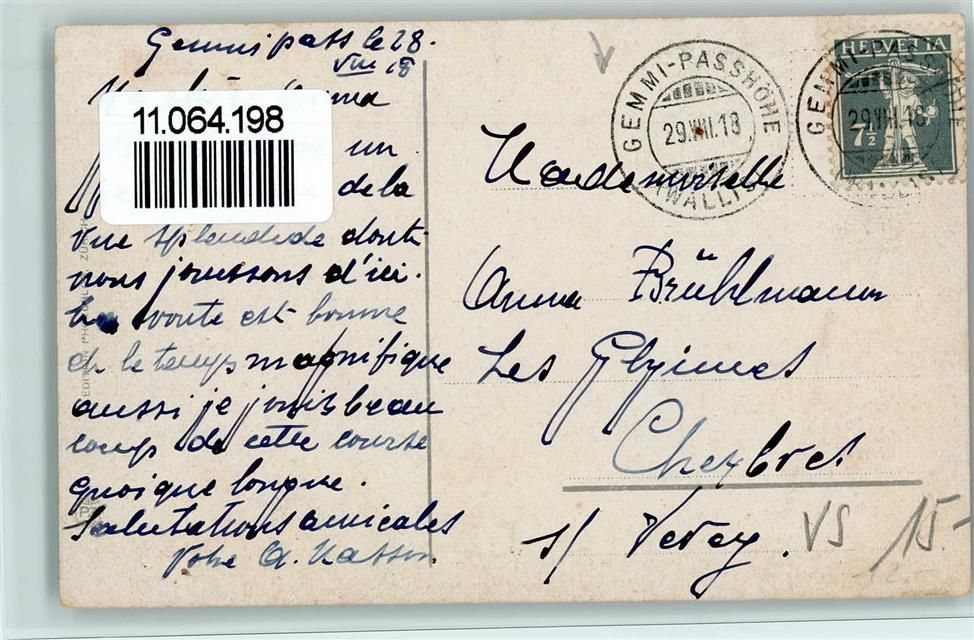 Gemmipass le 28.
VIII 18
Anna
11.064.198
un
de la
vue splendide dont
nous jouissons d'ici.
La route est bonne
et le temps magnifique
aussi je jouis beau
coup de cette course
quoique longue.
Salutations amicales
Votre A.
GEMMI-PASSHÖHE
29.VIII.18
(WALLIS)
HELVETIA
7½
GEMMI-PASSHÖHE
29.VIII.18
Mademoiselle
Anna Brühlmann
Les Glycines
Chexbres
s/ Vevey.
VS 15-